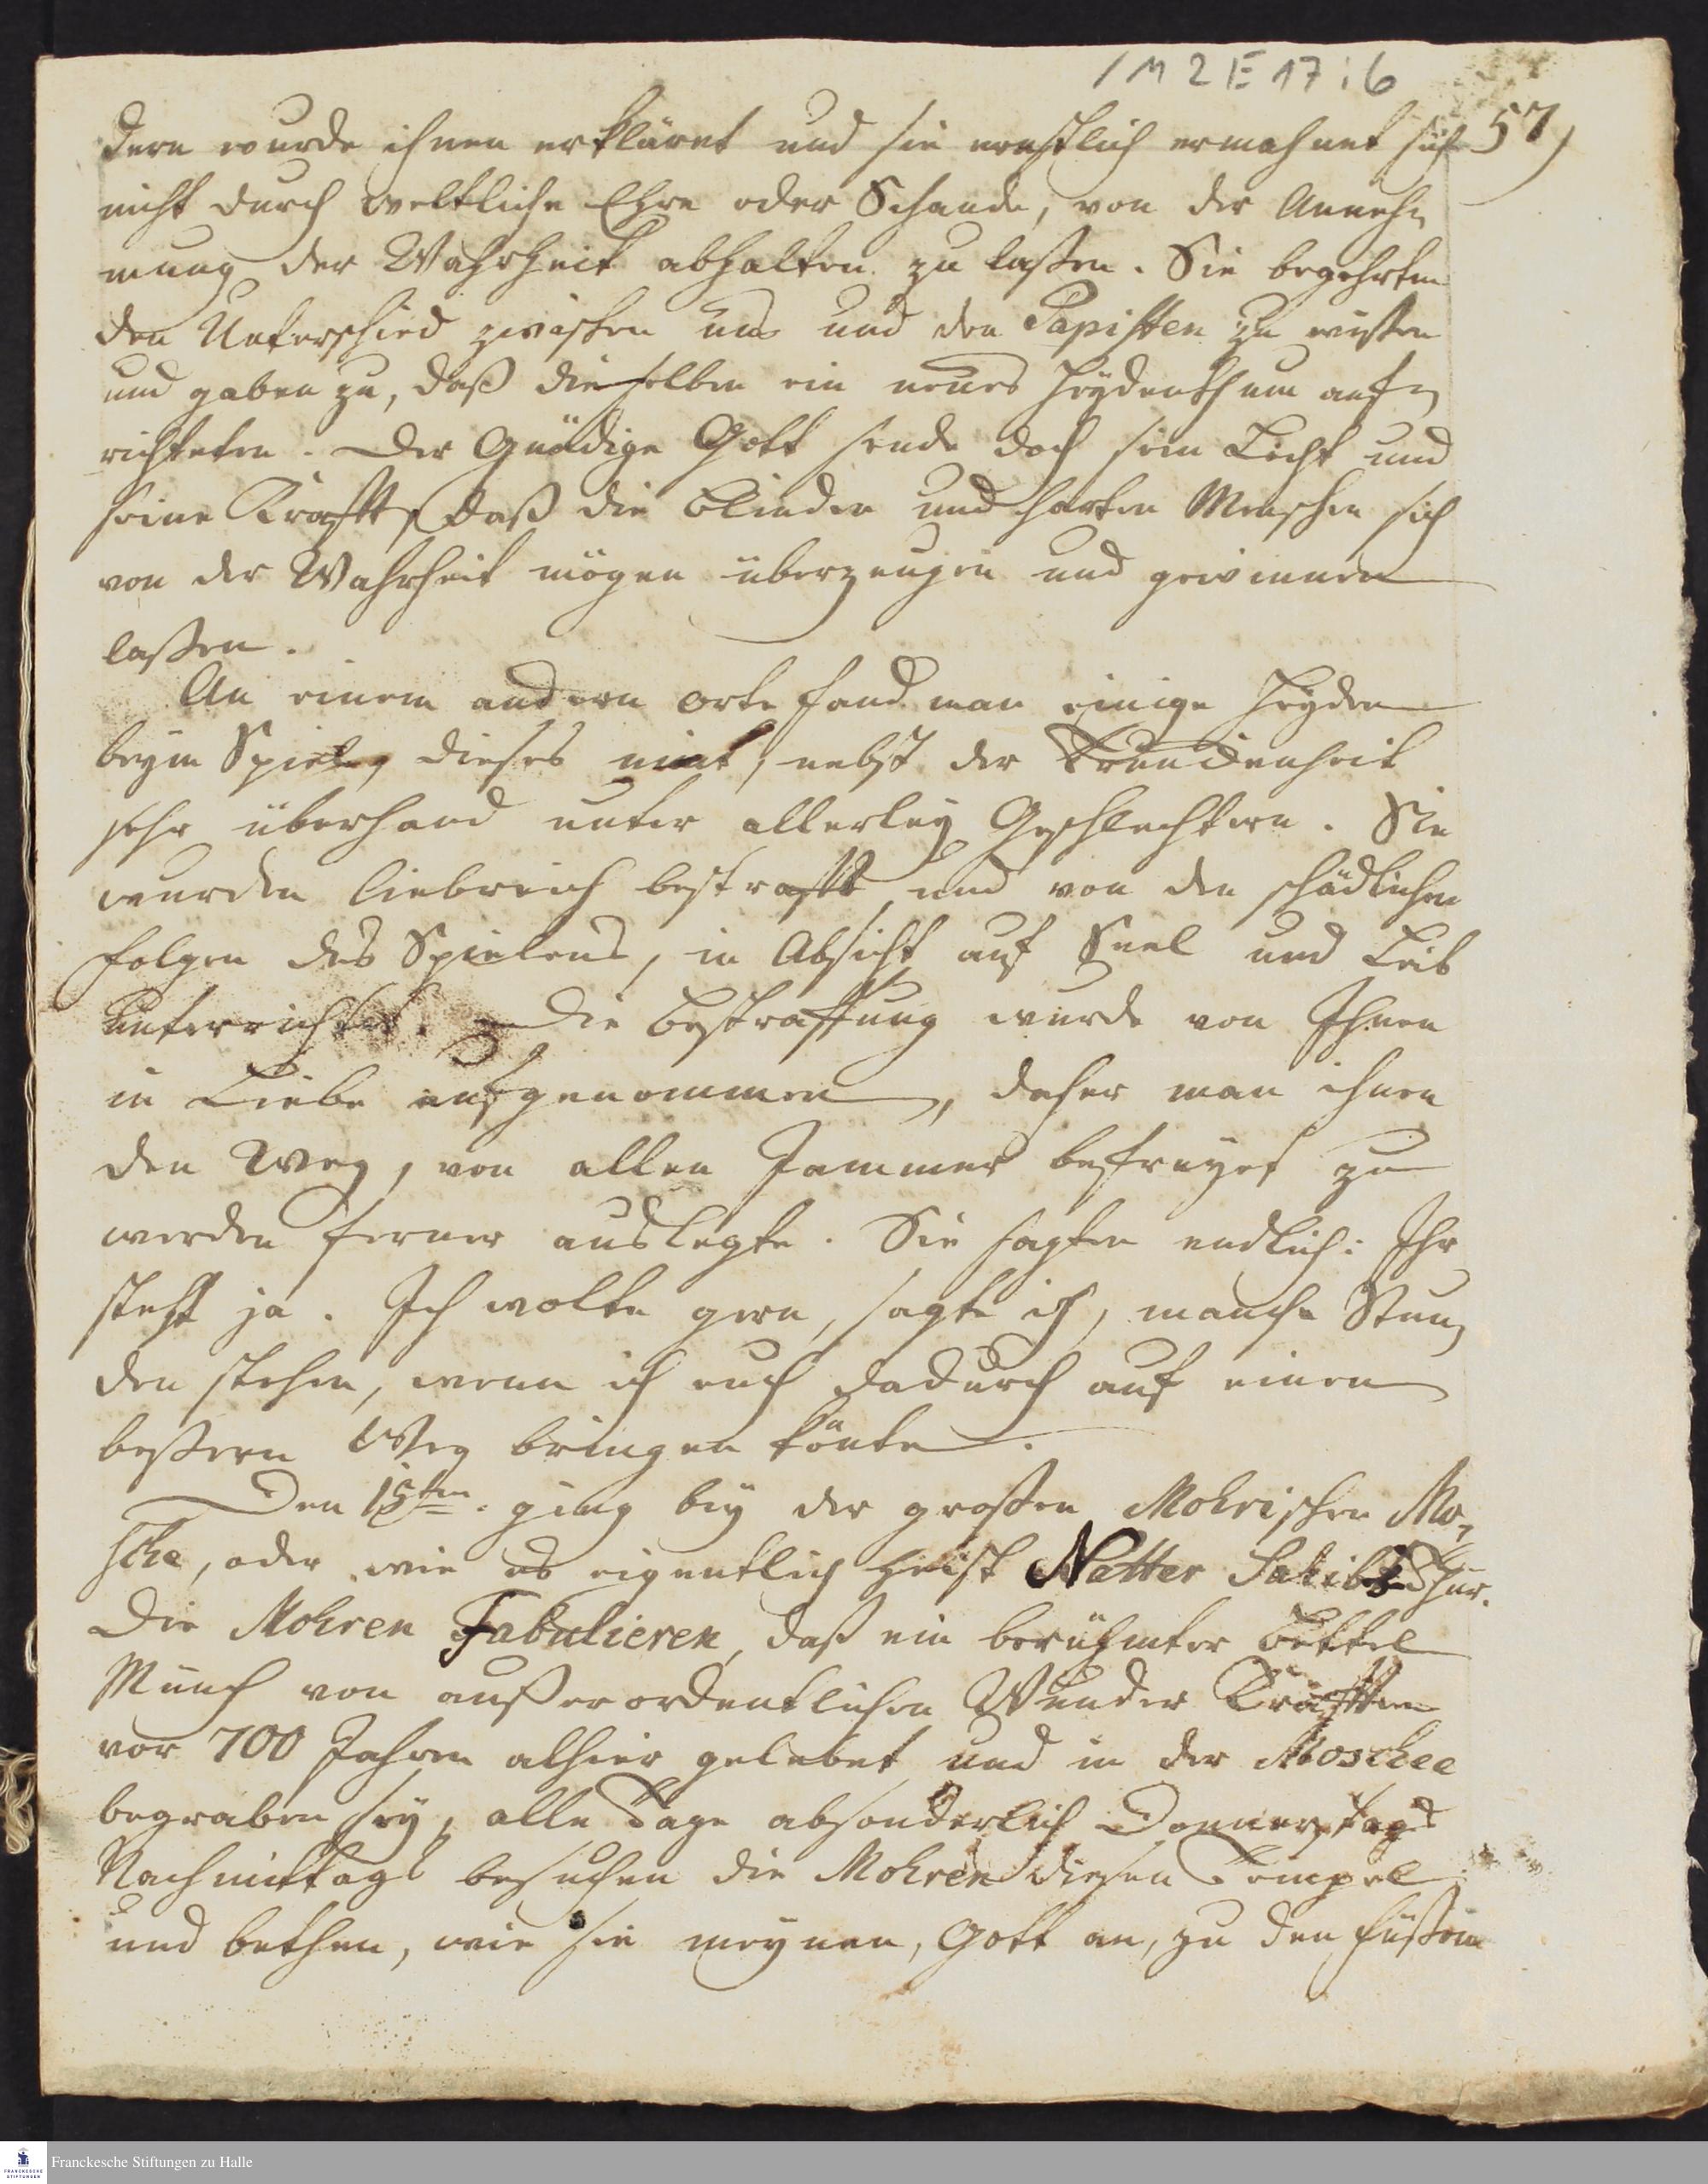 1 M 2 E 17 : 6
57)
dern wurde ihnen erkläret und sie ernstlich ermahnet sich
nicht durch weltliche Ehre oder Schande, von der Anneh-
mung der Wahrheit abhalten zu laßen. Sie begehrten
den Unterschied zwischen uns und den Papisten zu wißen
und gaben zu, daß dieselben ein neues Heydenthum auf-
richteten. Der Gnädige Gott sende doch sein Licht und
seine Krafft, daß die blinden und harten Menschen sich
von der Wahrheit mögen überzeugen und gewinnen
laßen.
An einem andern Orte fand man einige Heyden
beym Spielen, dieses nimt, nebst der Trunckenheit
sehr überhand unter allerley Geschlechtern. Sie
wurden liebreich bestrafft, und von den schädlichen
Folgen des Spielens, in Absicht auf Seel und Leib
unterrichtet. Die Bestraffung wurde von Ihnen
in Liebe aufgenommen, daher man ihnen
den Weg, von allen Jammer befreyet zu
werden ferner auslegte. Sie sagten endlich: Ihr
steht ja. Ich wolte gern, sagte ich, manche Stun-
den stehen, wenn ich euch dadurch auf einen
beßern Weg bringen könte.
Den 15ten. ging bey der großen Mohrischen Mo-
schee, oder wie es eigentlich heist Natter Sahib
Die Mohren Fabulieren, daß ein berühmter Bettel
Münch von außerordentlichen Wunder Kräfften
vor 700 Jahren alhier gelebet und in der Moschee
begraben sey, alle Tage absonderlich Donnerstags
Nachmittags besuchen die Mohren diesen Tempel
und bethen, wie sie meynen, Gott an, zu den Füßen
Franckesche Stiftungen zu Halle